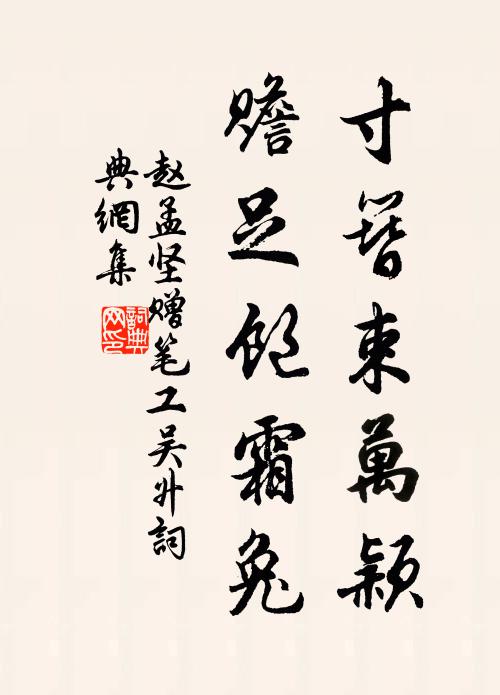 寸簪束萬穎
贍足飽霜兔
赵孟坚赠笔工吴升詞
典網集
詞典
网印